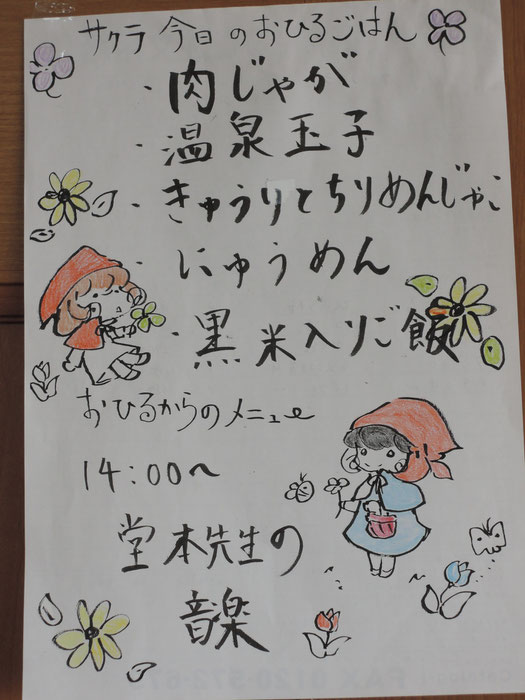 サクラ 今日のおひるごはん
・肉じゃが
・温泉玉子
・きゅうりとちりめんじゃこ
・にゅうめん
・黒米入りご飯
おひるからのメニュー
14:00~
堂本先生の
音楽
FAX 0120-572-6